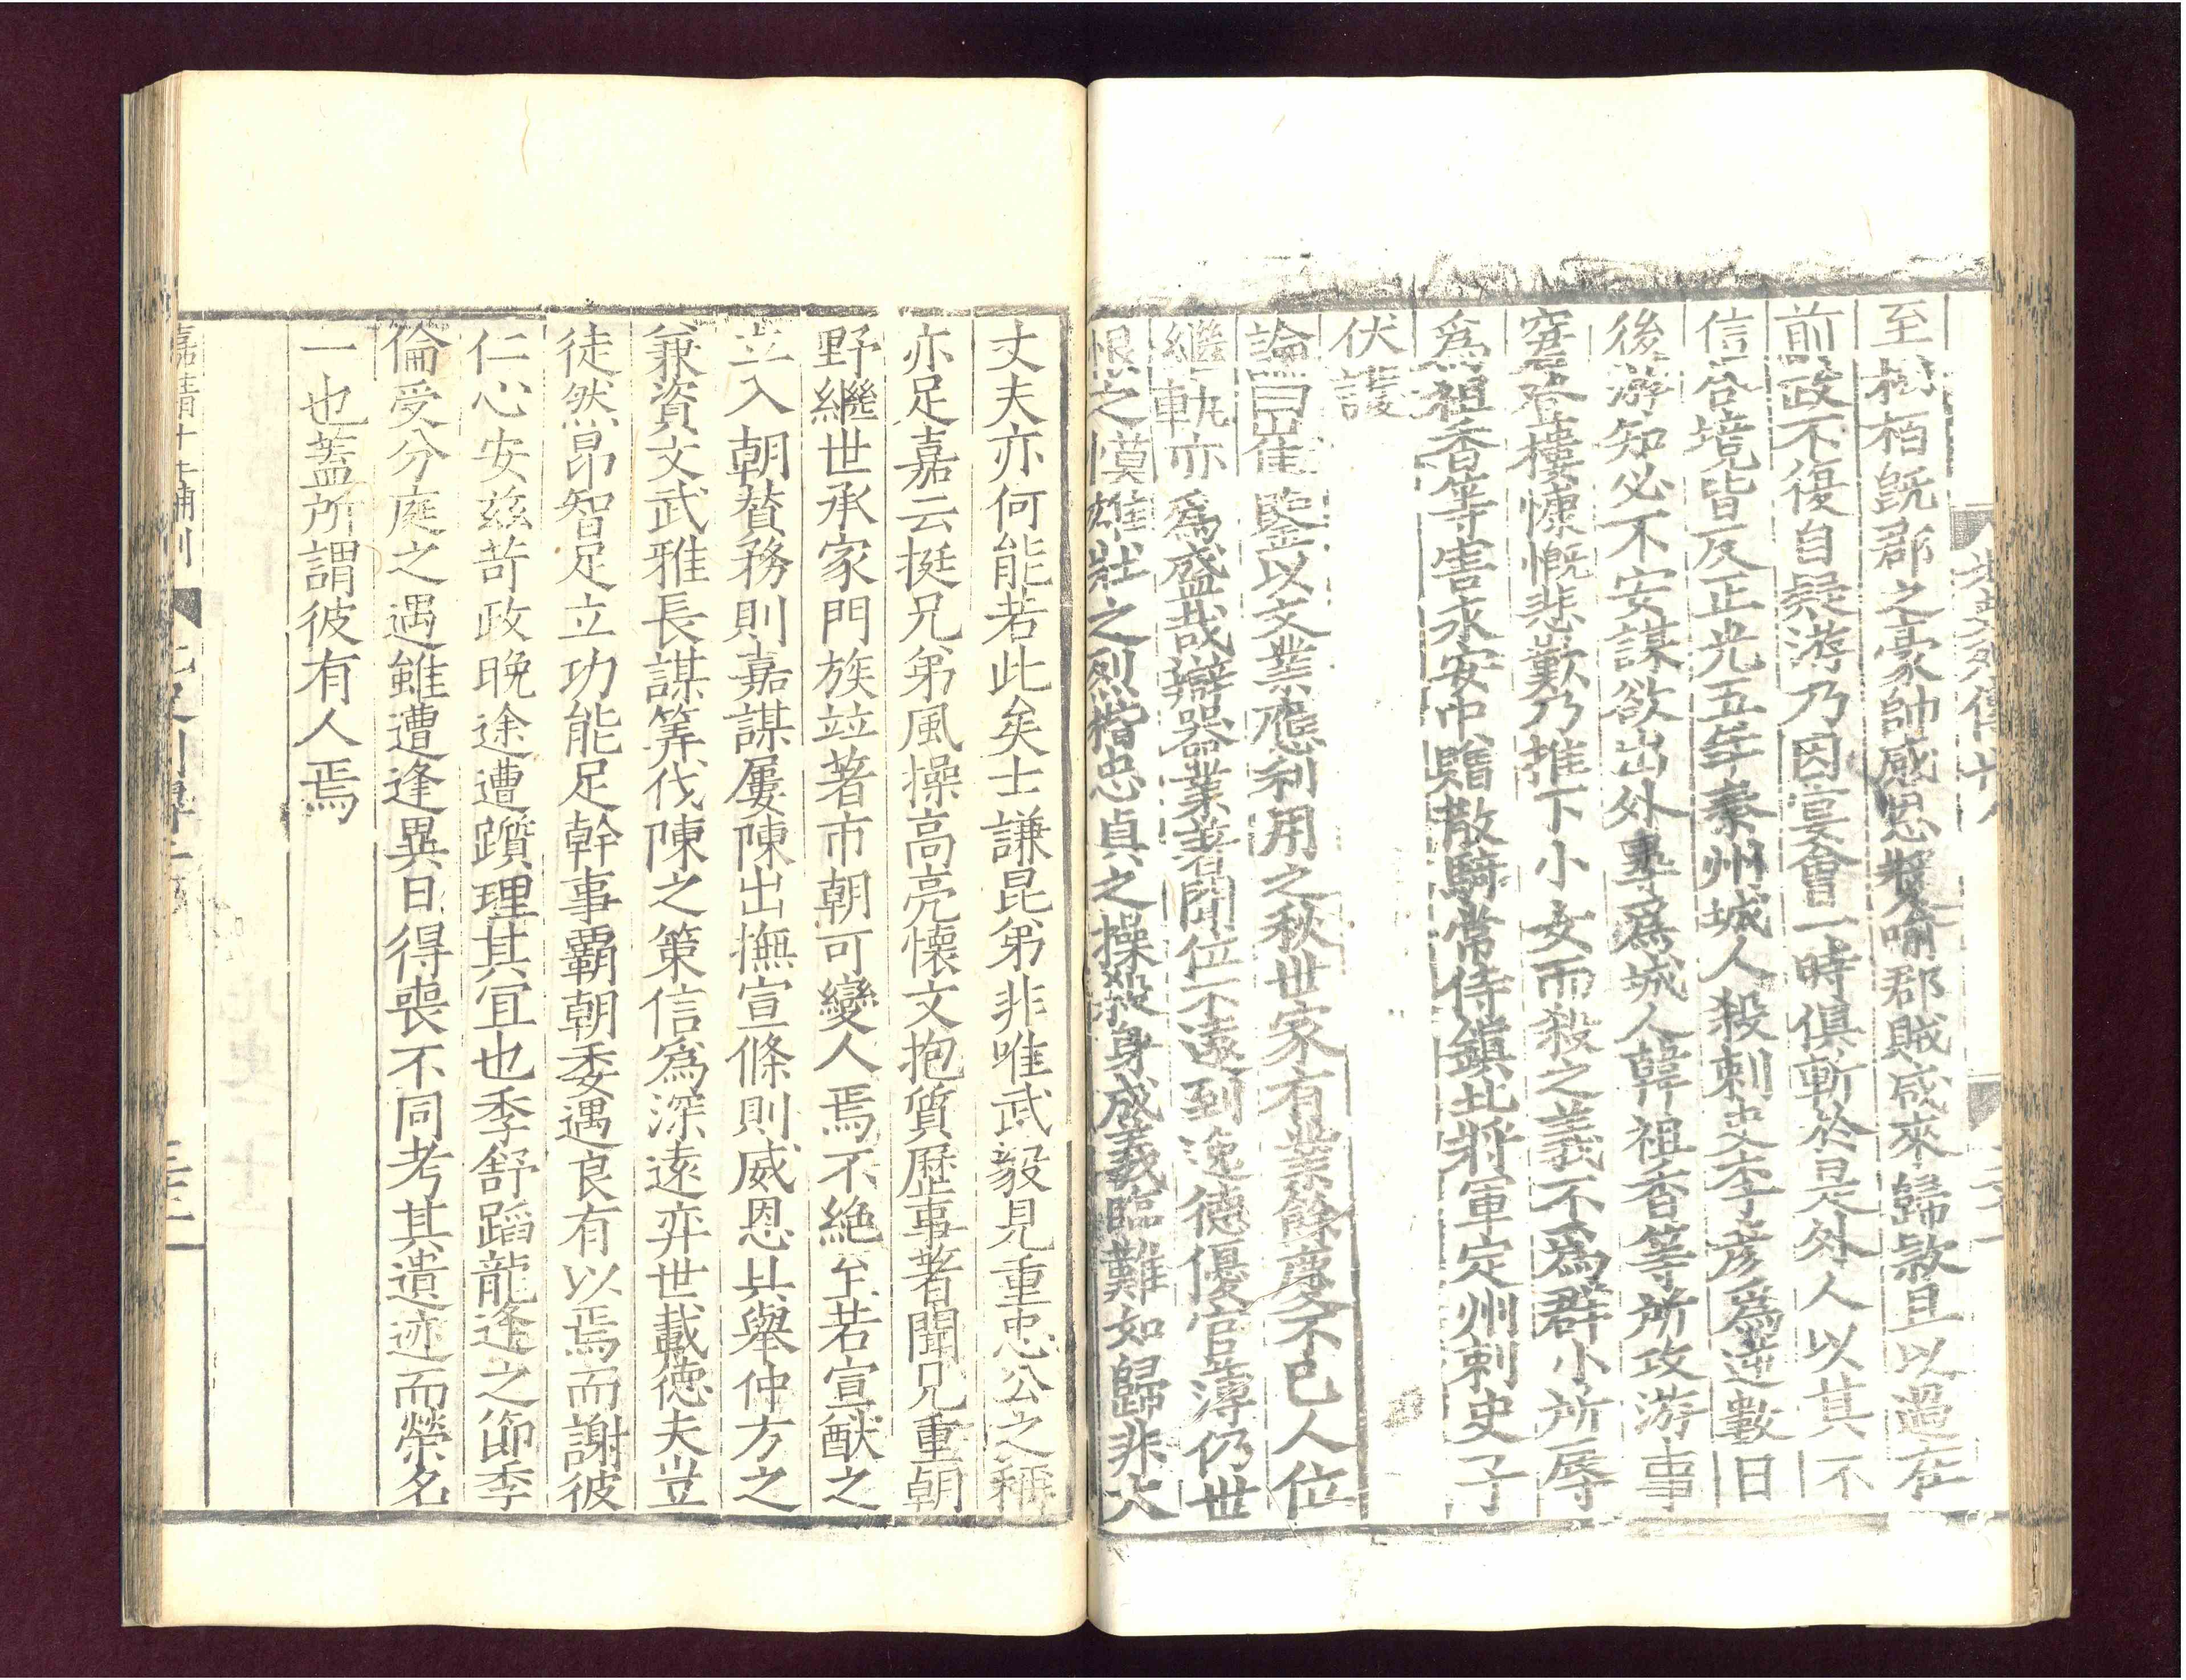 至松栢旣郡之豪帥感恩獎喻郡賊咸來歸款且以過在
前政不復自疑游乃因宴會一時俱斬於是外人以其不
信合境皆反正光五年秦州城人殺刺史李彥爲逆數日
後游知必不安謀欲出外尋爲城人韓祖香等所攻游事
窘登樓慷慨悲歎乃推下小女而殺之義不爲群小所辱
爲祖香等害永安中贈散騎常侍鎭北將軍定州刺史子
伏護
論曰崔鑒以文業應利用之秋世家有業餘慶不已人位
繼軌亦爲盛哉辯器業著聞位不遠到逸德優官薄仍世
恨之慔雄壯之烈楷忠貞之操殺身成義臨難如歸非大
丈夫亦何能若此矣士謙昆弟非唯武毅見重忠公之稱
亦足嘉云挺兄弟風操高亮懷文抱質歷事著聞兄重朝
野繼世承家門族竝著市朝可變人焉不絶至若宣猷之
立入朝賛務則嘉謀屢陳出撫宣條則威恩具舉仲方之
兼資文武雅長謀筭伐陳之策信爲深遠弈世載德夫豈
徒然昂智足立功能足幹事覇朝委遇良有以焉而謝彼
仁心安兹苛政晚途遭躓理其宜也季舒蹈龍逢之節季
倫受分庭之遇雖遭逢異日得喪不同考其遺迹而榮名
一也蓋所謂彼有人焉
嘉靖十年補刊